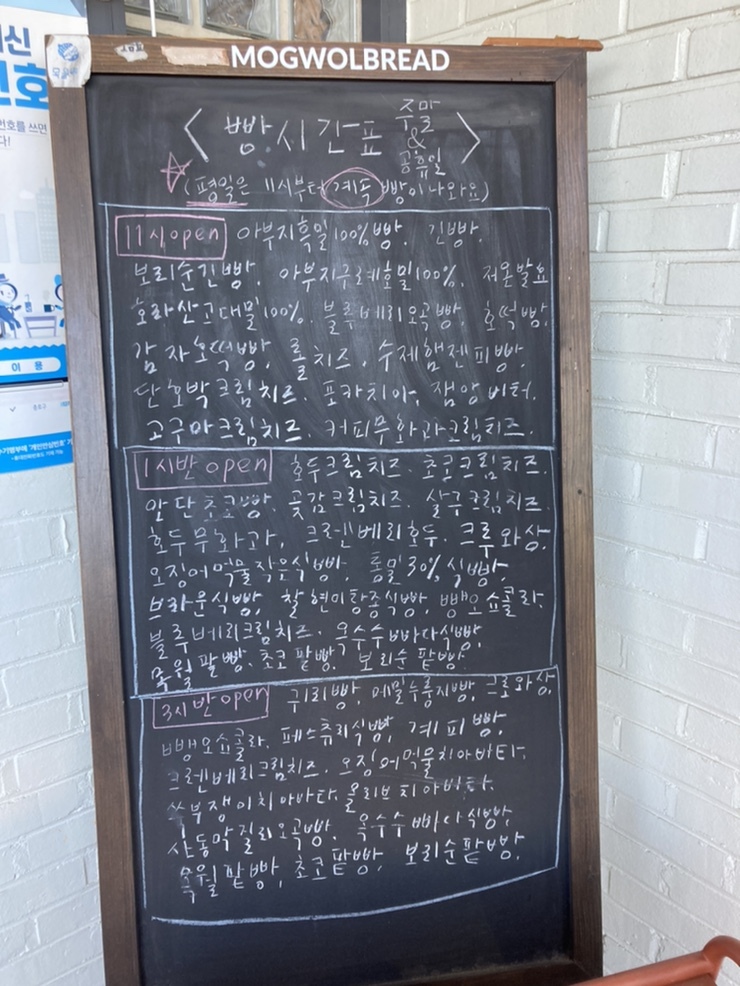 MOGWOLBREAD
< 빵 시간표 주말 & 공휴일 >
(평일은 11시부터 계속 빵이 나와요)
11시 open 아부지흑밀100%빵. 긴빵.
보리순긴빵. 아부지구로헤호밀100%. 저온발효
호라산고대밀100%. 블루베리오곡빵. 호떡빵.
감자호떡빵. 롤치즈. 수제햄젠피빵.
단호박크림치즈. 포카치아. 잼앙버터.
고구마크림치즈. 커피무화과크림치즈.
1시반 open 호두크림치즈. 초코크림치즈.
앙단초코빵. 곶감크림치즈. 살구크림치즈.
호두무화과. 크렌베리호두. 크루와상.
오징어먹물작은식빵. 통밀30%식빵.
브라운식빵. 찰현미탕종식빵. 빵오쇼콜라.
블루베리크림치즈. 옥수수빠다식빵.
목월팥빵. 초코팥빵. 보리순팥빵.
3시반 open 귀리빵. 메밀누룽지빵. 크로와상.
빵오쇼콜라. 페스츄리식빵. 계피빵.
크렌베리크림치즈. 오징어먹물치아바타.
쑥부쟁이치아바타. 올리브치아바타.
산동막질리오곡빵. 옥수수빠다식빵.
목월팥빵. 초코팥빵. 보리순팥빵.
번호를 쓰면
이용